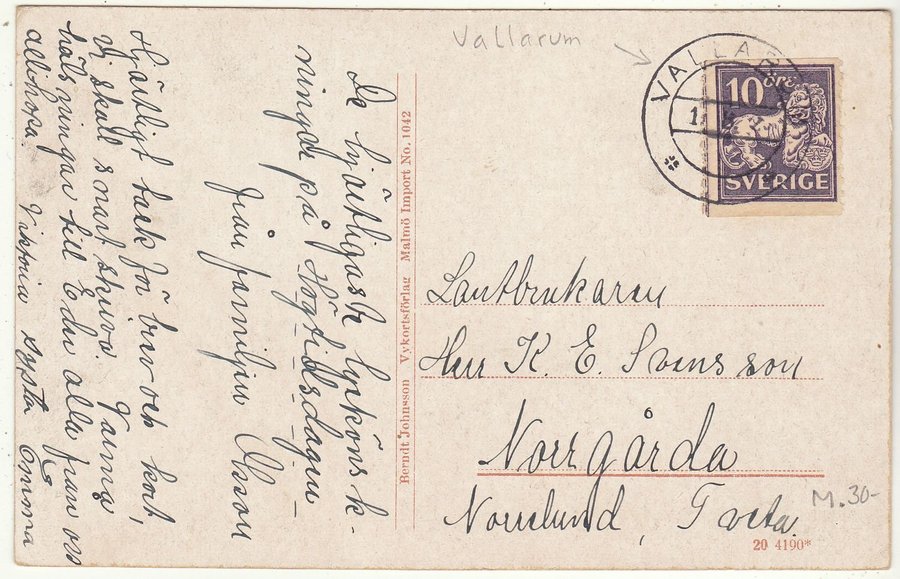 Vallarum
VALLARUM
10 ÖRE
SVERIGE
De hjärtligaste lyckönsk-
ningar på Högtidsdagen
från familjen Olsson
Hjärtligt tack för brev och kort,
Vi skall snart skriva Varma
hälsningar till Eder alla från oss
allihopa. Viktoria syster Emma
Berndt Johnsson Vykortsförlag Malmö Import No. 1042
Lantbrukaren
Herr K. E. Svensson
Norrgårda
Norrelund, Tveta.
M. 30-
20 4190*